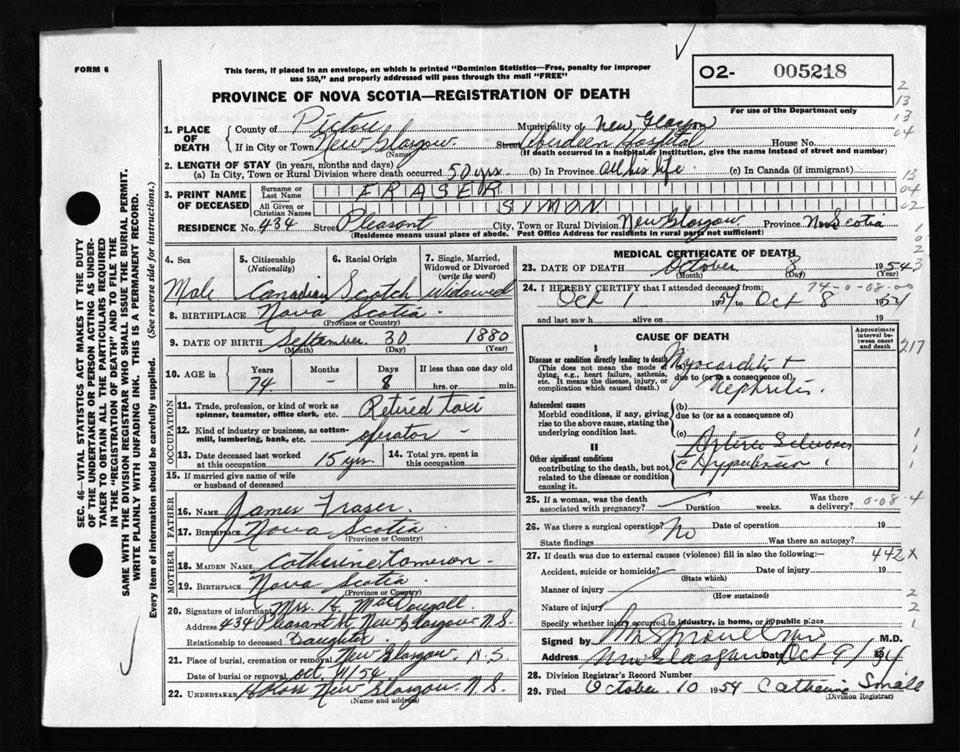 FORM 6
This form, if placed in an envelope, on which is printed "Dominion Statistics—Free, penalty for improper
use $50," and properly addressed will pass through the mail "FREE"
PROVINCE OF NOVA SCOTIA—REGISTRATION OF DEATH
O2- 005218
For use of the Department only
1. PLACE OF DEATH
County of Pictou Municipality of New Glasgow
If in City or Town New Glasgow Street Aberdeen Hospital House No.
(Name) (If death occurred in a hospital or institution, give the name instead of street and number)
2. LENGTH OF STAY (in years, months and days)
(a) In City, Town or Rural Division where death occurred 50 yrs (b) In Province All his life (c) In Canada (if immigrant)
3. PRINT NAME OF DECEASED
Surname or Last Name FRASER
All Given or Christian Names SIMON
RESIDENCE No. 434 Street Pleasant City, Town or Rural Division New Glasgow Province Nova Scotia
(Residence means usual place of abode. Post Office Address for residents in rural parts not sufficient)
4. Sex Male
5. Citizenship (Nationality) Canadian
6. Racial Origin Scotch
7. Single, Married, Widowed or Divorced (write the word) Widowed
8. BIRTHPLACE Nova Scotia
(Province or Country)
9. DATE OF BIRTH September 30 1880
(Month) (Day) (Year)
10. AGE Years 74 Months - Days 8 If less than one day old
hrs. or min.
OCCUPATION
11. Trade, profession, or kind of work as spinner, teamster, office clerk, etc. Retired taxi
12. Kind of industry or business, as cotton-mill, lumbering, bank, etc. operator -
13. Date deceased last worked at this occupation 15 yrs.
14. Total yrs. spent in this occupation
15. If married give name of wife or husband of deceased
FATHER
16. Name James Fraser
17. Birthplace Nova Scotia
(Province or Country)
MOTHER
18. MAIDEN NAME Catherine Cameron
19. BIRTHPLACE Nova Scotia
(Province or Country)
20. Signature of informant Mrs. H. MacDougall
Address 434 Pleasant St. New Glasgow N.S.
Relationship to deceased Daughter
21. Place of burial, cremation or removal New Glasgow, N.S.
Date of burial or removal Oct. 11/54
22. UNDERTAKER New Glasgow N.S.
(Name and address)
MEDICAL CERTIFICATE OF DEATH
23. DATE OF DEATH October 8 1954
(Month) (Day) (Year)
24. I HEREBY CERTIFY that I attended deceased from: 74-0-08-00
Oct 1 1954 to Oct 8 1954
and last saw h alive on 19
CAUSE OF DEATH
Approximate interval between onset and death
I
Disease or condition directly leading to death
(This does not mean the mode of dying, e.g., heart failure, asthenia, etc. It means the disease, injury, or complication which caused death.)
(a) Myocarditis
due to (or as a consequence of)
Nephritis
Antecedent causes
Morbid conditions, if any, giving rise to the above cause, stating the underlying condition last.
(b)
due to (or as a consequence of)
(c) Arterio Sclerosis
II
Other significant conditions
contributing to the death, but not related to the disease or condition causing it.
25. If a woman, was the death associated with pregnancy? Duration weeks. Was there a delivery?
0-08-4
26. Was there a surgical operation? No Date of operation 19
State findings Was there an autopsy?
27. If death was due to external causes (violence) fill in also the following:— 442X
Accident, suicide or homicide? Date of injury 19
(State which)
Manner of injury
(How sustained)
Nature of injury
Specify whether injury occurred in industry, in home, or in public place
Signed by M.D.
Address New Glasgow Date Oct 9/54
28. Division Registrar's Record Number
29. Filed October 10 1954 Catherine Small
(Division Registrar)
SEC. 46—VITAL STATISTICS ACT MAKES IT THE DUTY
OF THE UNDERTAKER OR PERSON ACTING AS UNDER-
TAKER TO OBTAIN ALL THE PARTICULARS REQUIRED
IN THE "REGISTRATION OF DEATH" AND TO FILE THE
SAME WITH THE DIVISION REGISTRAR WHO SHALL ISSUE THE BURIAL PERMIT.
WRITE PLAINLY WITH UNFADING INK. THIS IS A PERMANENT RECORD.
Every item of information should be carefully supplied. (See reverse side for instructions.)